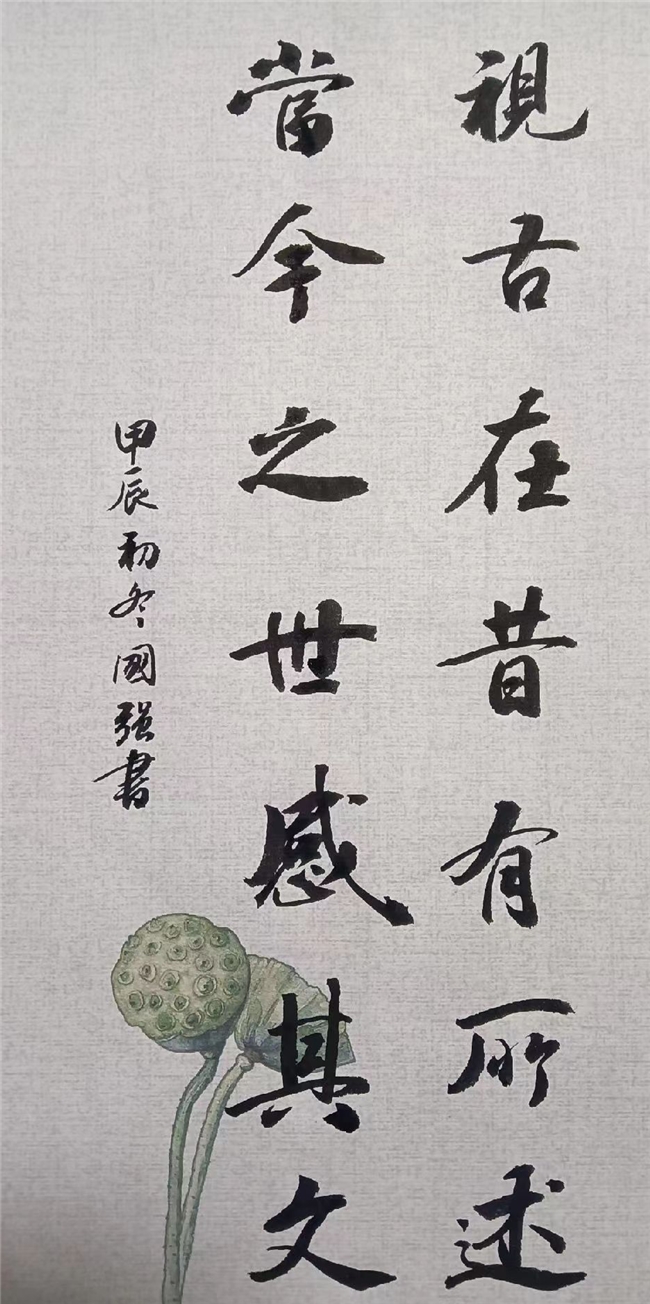 視古在昔有所述
當今之世感其文
甲辰初冬國強書